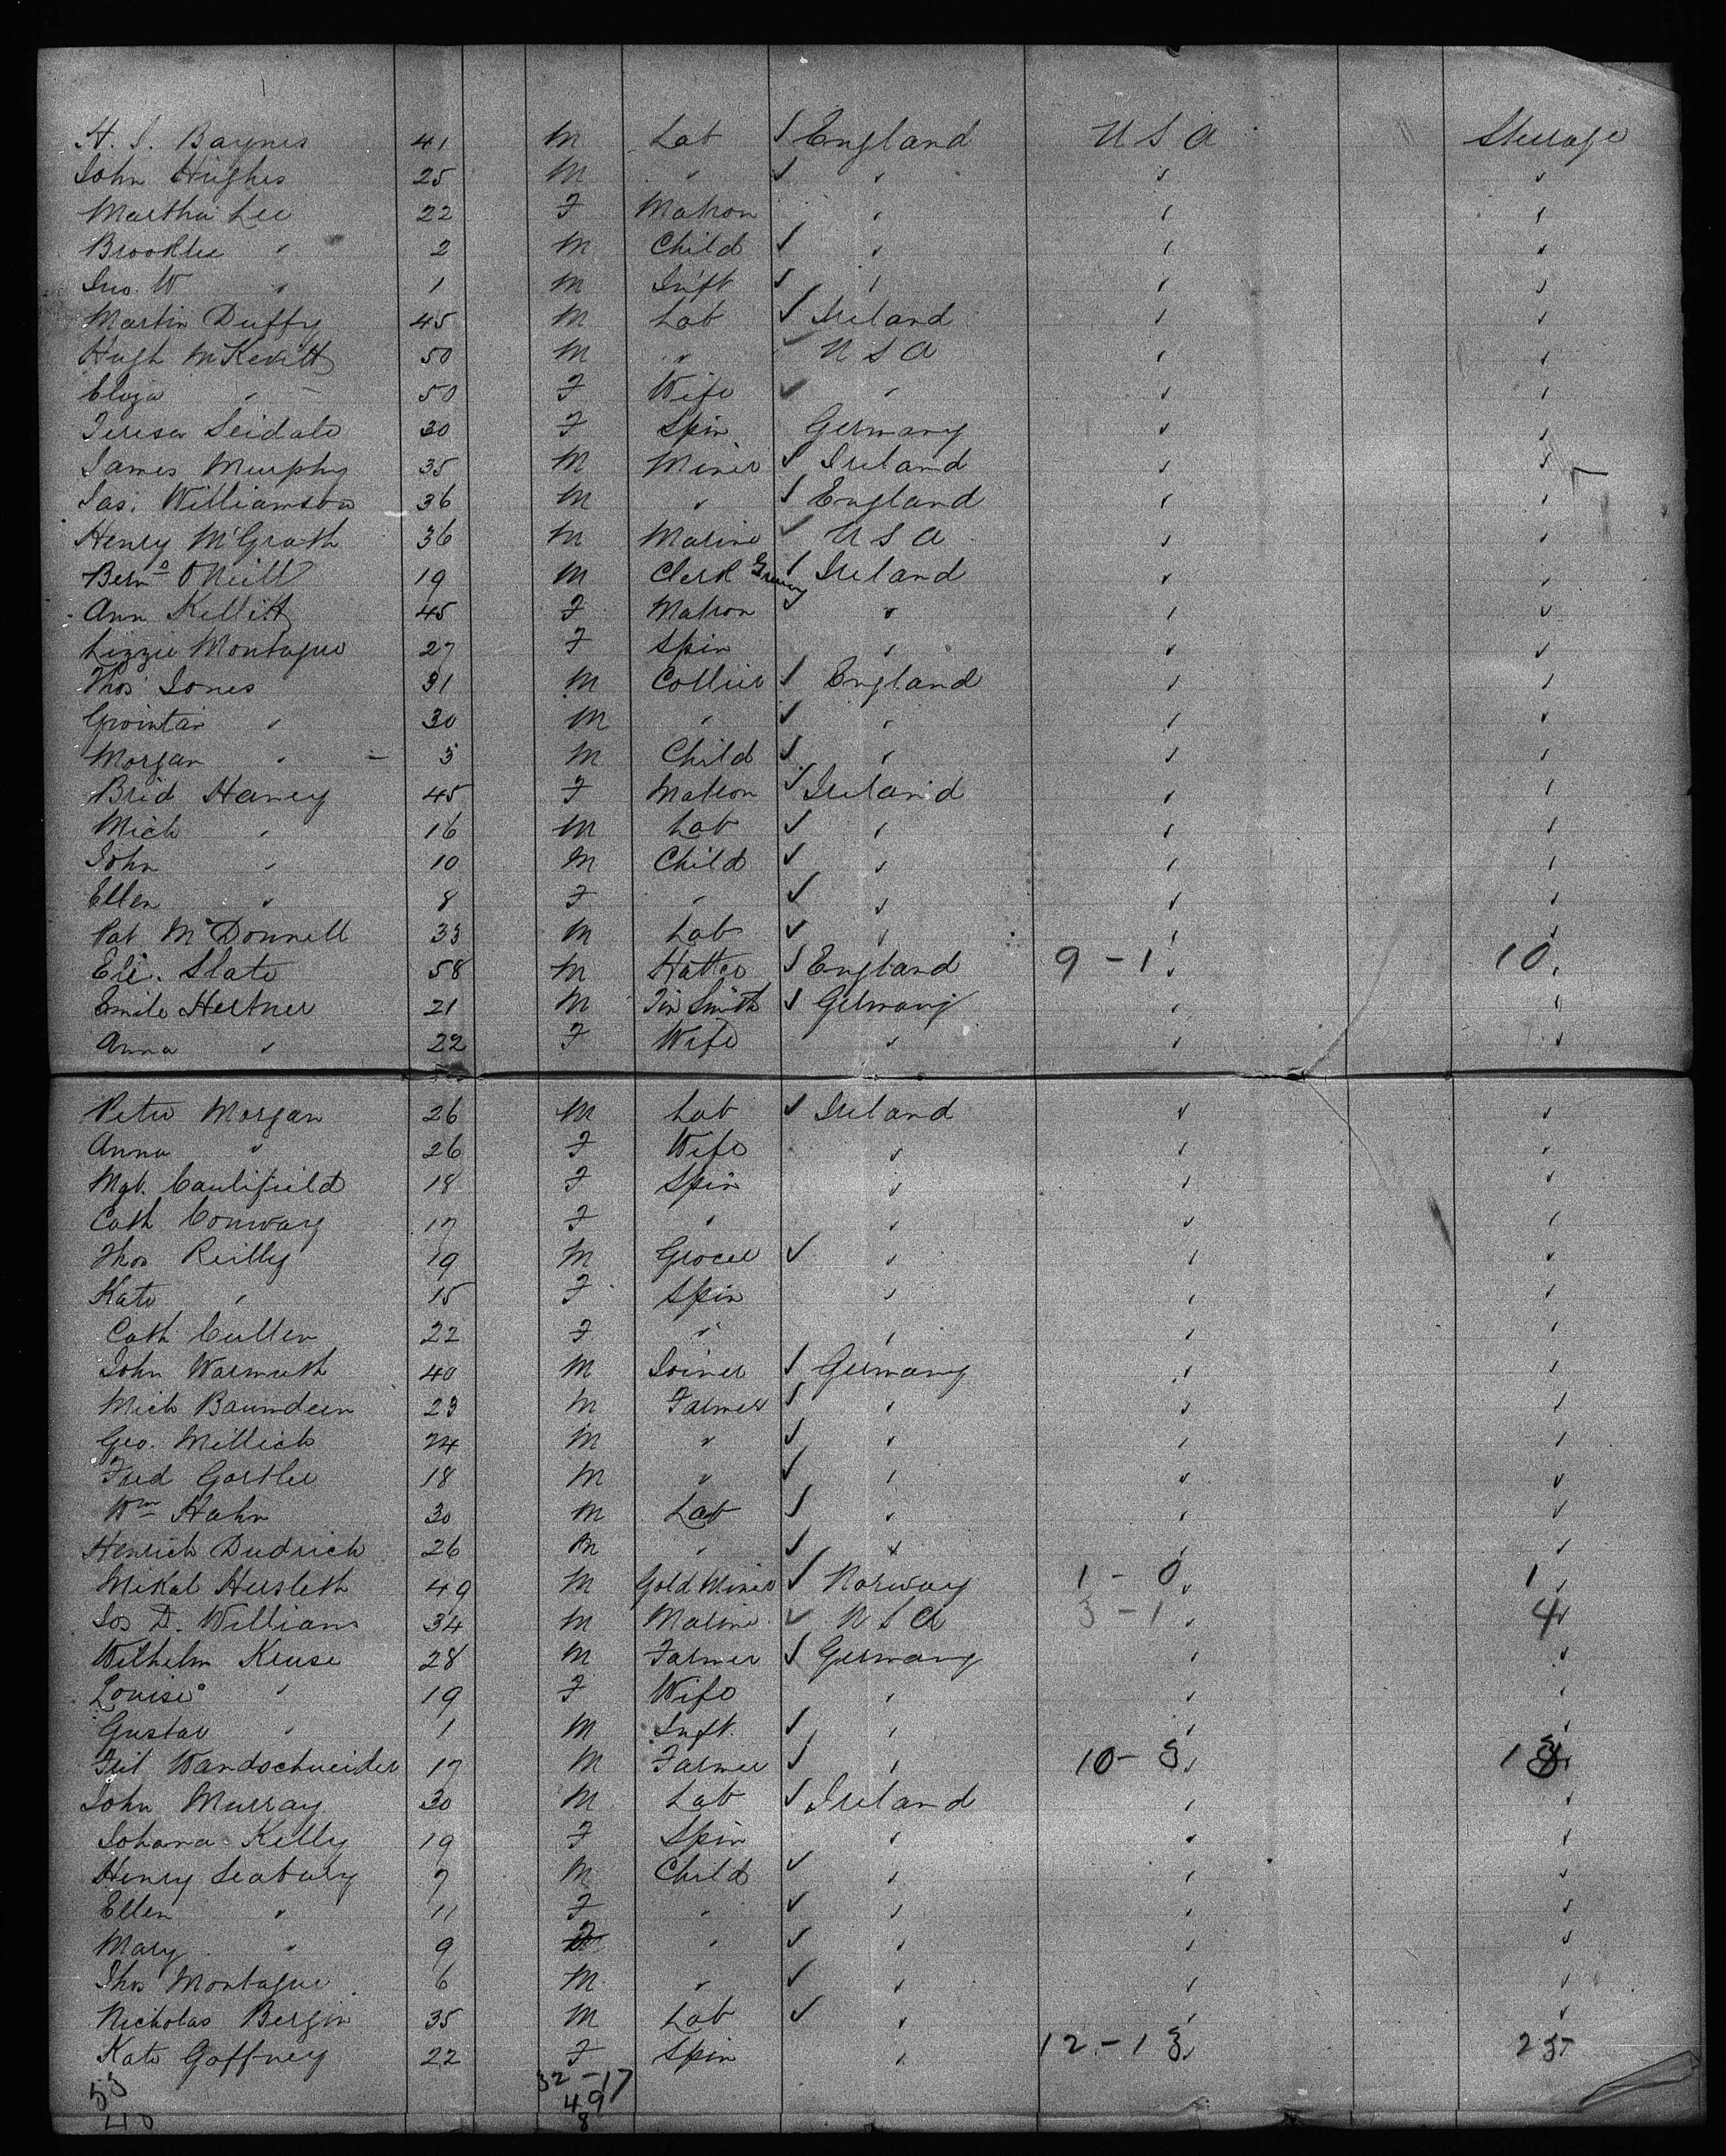 H. S. Baynes 41 M Lab ✓ England U S A Steerage
John Hughes 25 M " ✓ " " "
Martha Lee 22 F Matron " " "
Brooklee " 2 M Child ✓ " " "
Jno. W " 1 M Inft ✓ " " "
Martin Duffy 45 M Lab ✓ Ireland " "
Hugh McKevitt 50 M " ✓ U S A " "
Eliza " 50 F Wife ✓ " " "
Teresa Seidale 30 F Spin Germany " "
James Murphy 35 M Miner ✓ Ireland " "
Jas. Williamson 36 M " ✓ England " "
Henry McGrath 36 M Marine ✓ U S A " "
Bernd O'Neill 19 M Clerk ✓ Ireland " "
Ann Kellitt 45 F Matron " " "
Lizzie Montague 27 F Spin " " "
Thos Jones 31 M Collier ✓ England " "
30 M " ✓ " " "
Morgan " 5 M Child ✓ " " "
Brid Haney 45 F Matron ✓ Ireland " "
Mich " 16 M Lab ✓ " " "
John " 10 M Child ✓ " " "
Ellen " 8 F " ✓ " " "
Pat McDonnell 33 M Lab ✓ " " "
Eli. Slate 58 M Hatter ✓ England 9 - 1 " 10 "
Emile Hertner 21 M Tin Smith ✓ Germany " "
Anna " 22 F Wife " " "
Peter Morgan 26 M Lab ✓ Ireland " "
Anna " 26 F Wife " " "
Mgt. Caulifield 18 F Spin " " "
Cath Conway 17 F " " " "
Thos Reilly 19 M Grocer ✓ " " "
Kate " 15 F Spin " " "
Cath Cullen 22 F " " " "
John Warmuth 40 M Joiner ✓ Germany " "
Mich Baumdeen 23 M Farmer ✓ " " "
Geo. Millich 24 M " ✓ " " "
Fred Gortler 18 M " ✓ " " "
Wm Hahn 30 M Lab ✓ " " "
Henrich Dudrich 26 M " ✓ " " "
Mikal Hersleth 49 M Gold Miner ✓ Norway 1 - 0 " 1 "
Jos D. Williams 34 M Marine ✓ U S A 3 - 1 " 4 "
Wilhelm Kruse 28 M Farmer ✓ Germany " "
Louise " 19 F Wife " " "
Gustav " 1 M Inft. ✓ " " "
Wandschneider 17 M Farmer ✓ " 10 - 3 " 13 "
John Murray 30 M Lab ✓ Ireland " "
Johana Kelly 19 F Spin " " "
Henry Seabury 7 M Child ✓ " " "
Ellen " 11 F " ✓ " " "
Mary " 9 F " ✓ " " "
Thos Montague 6 M " ✓ " " "
Nicholas Bergin 35 M Lab ✓ " " "
Kate Gaffney 22 F Spin " 12 - 13 " 25
53 32 - 17
49
8